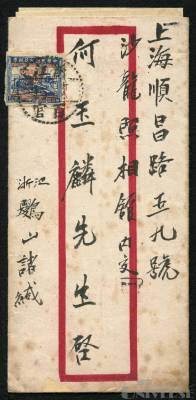 上海順昌路五九號
沙龍照相館內交
何玉麟先生啓
浙江
鸚山諸緘
UNIVERSAL